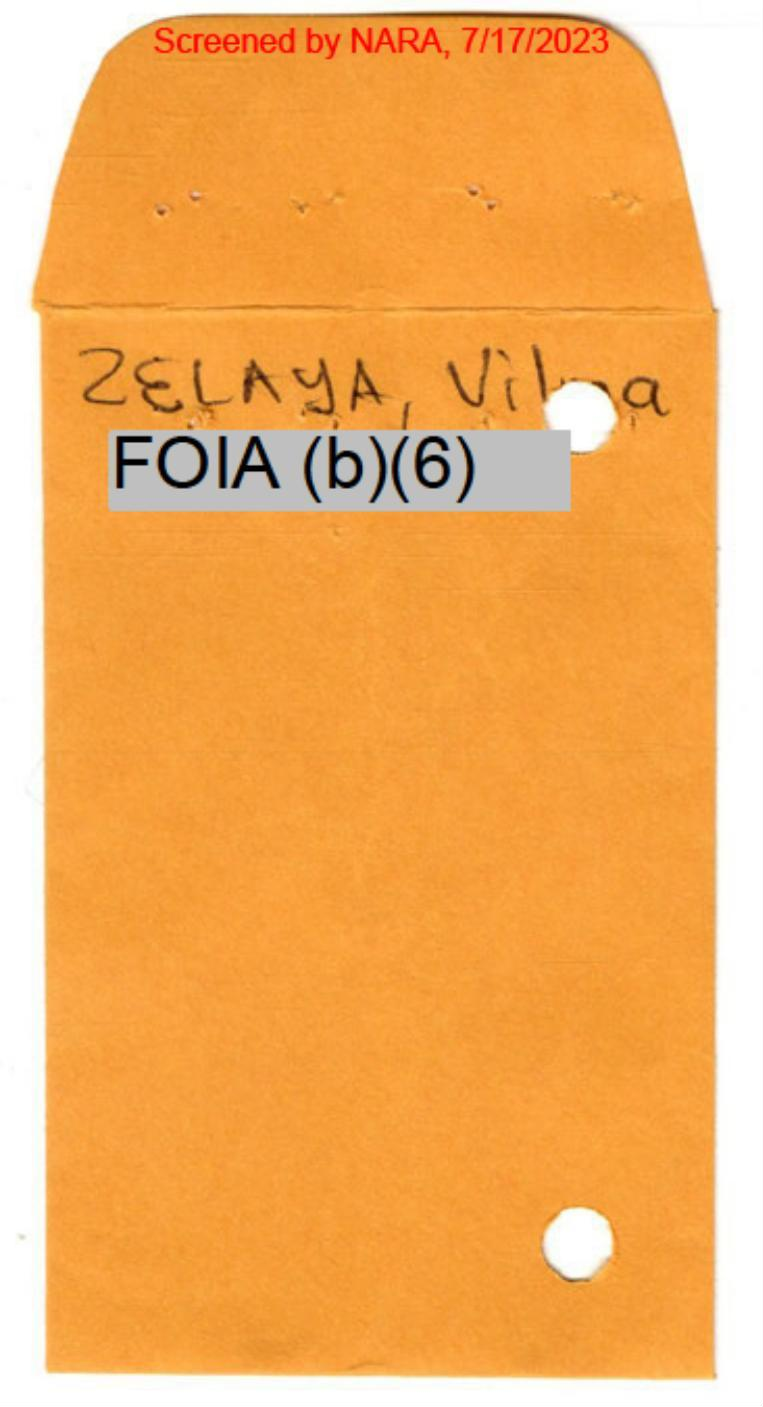 Screened by NARA, 7/17/2023
ZELAYA, Vilma
FOIA (b)(6)